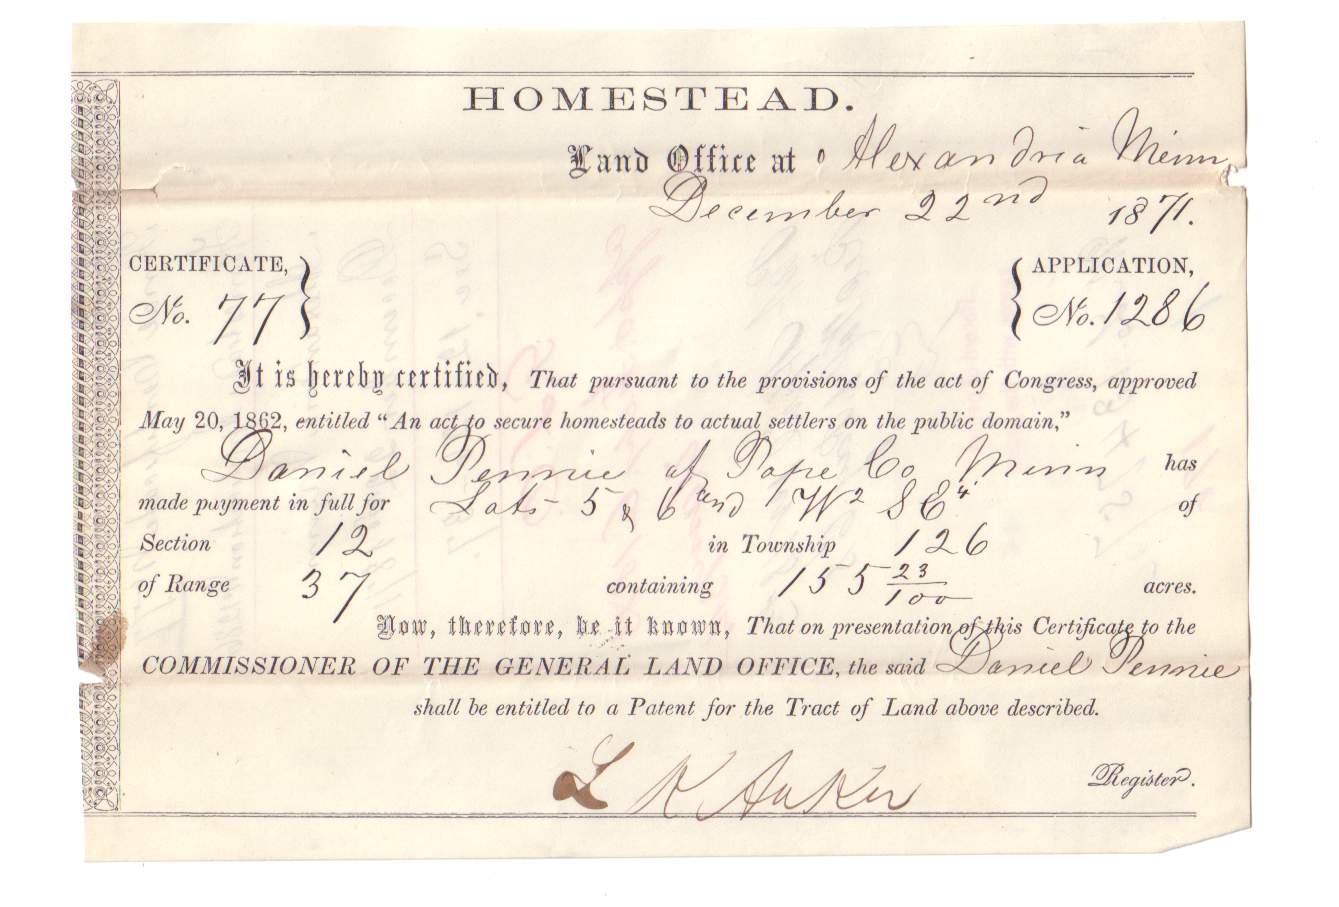 HOMESTEAD.
Land Office at Alexandria Minn
December 22nd 1871.
CERTIFICATE, APPLICATION,
No. 77 No. 1286
It is hereby certified, That pursuant to the provisions of the act of Congress, approved
May 20, 1862, entitled “An act to secure homesteads to actual settlers on the public domain,”
Daniel Pennie of Pope Co Minn has
made payment in full for Lots 5 & 6 and W2 SE4 of
Section 12 in Township 126
of Range 37 containing 155 23/100 acres.
Now, therefore, be it known, That on presentation of this Certificate to the
COMMISSIONER OF THE GENERAL LAND OFFICE, the said Daniel Pennie
shall be entitled to a Patent for the Tract of Land above described.
L K Aaker Register.